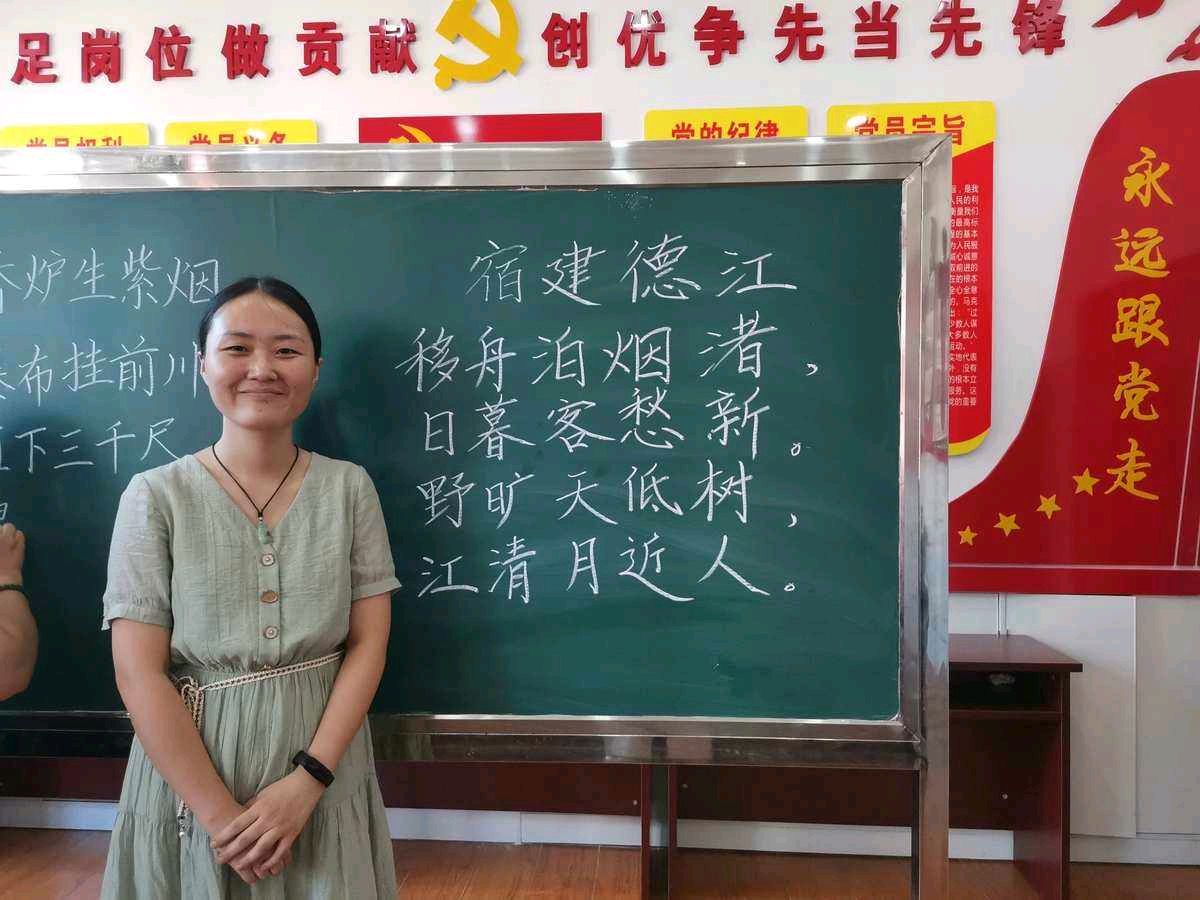 足岗位做贡献 创优争先当先锋
党员权利
党员义务
党的纪律
党员宗旨
永远跟党走
炉生紫烟
布挂前川
下三千尺
宿建德江
移舟泊烟渚，
日暮客愁新。
野旷天低树，
江清月近人。